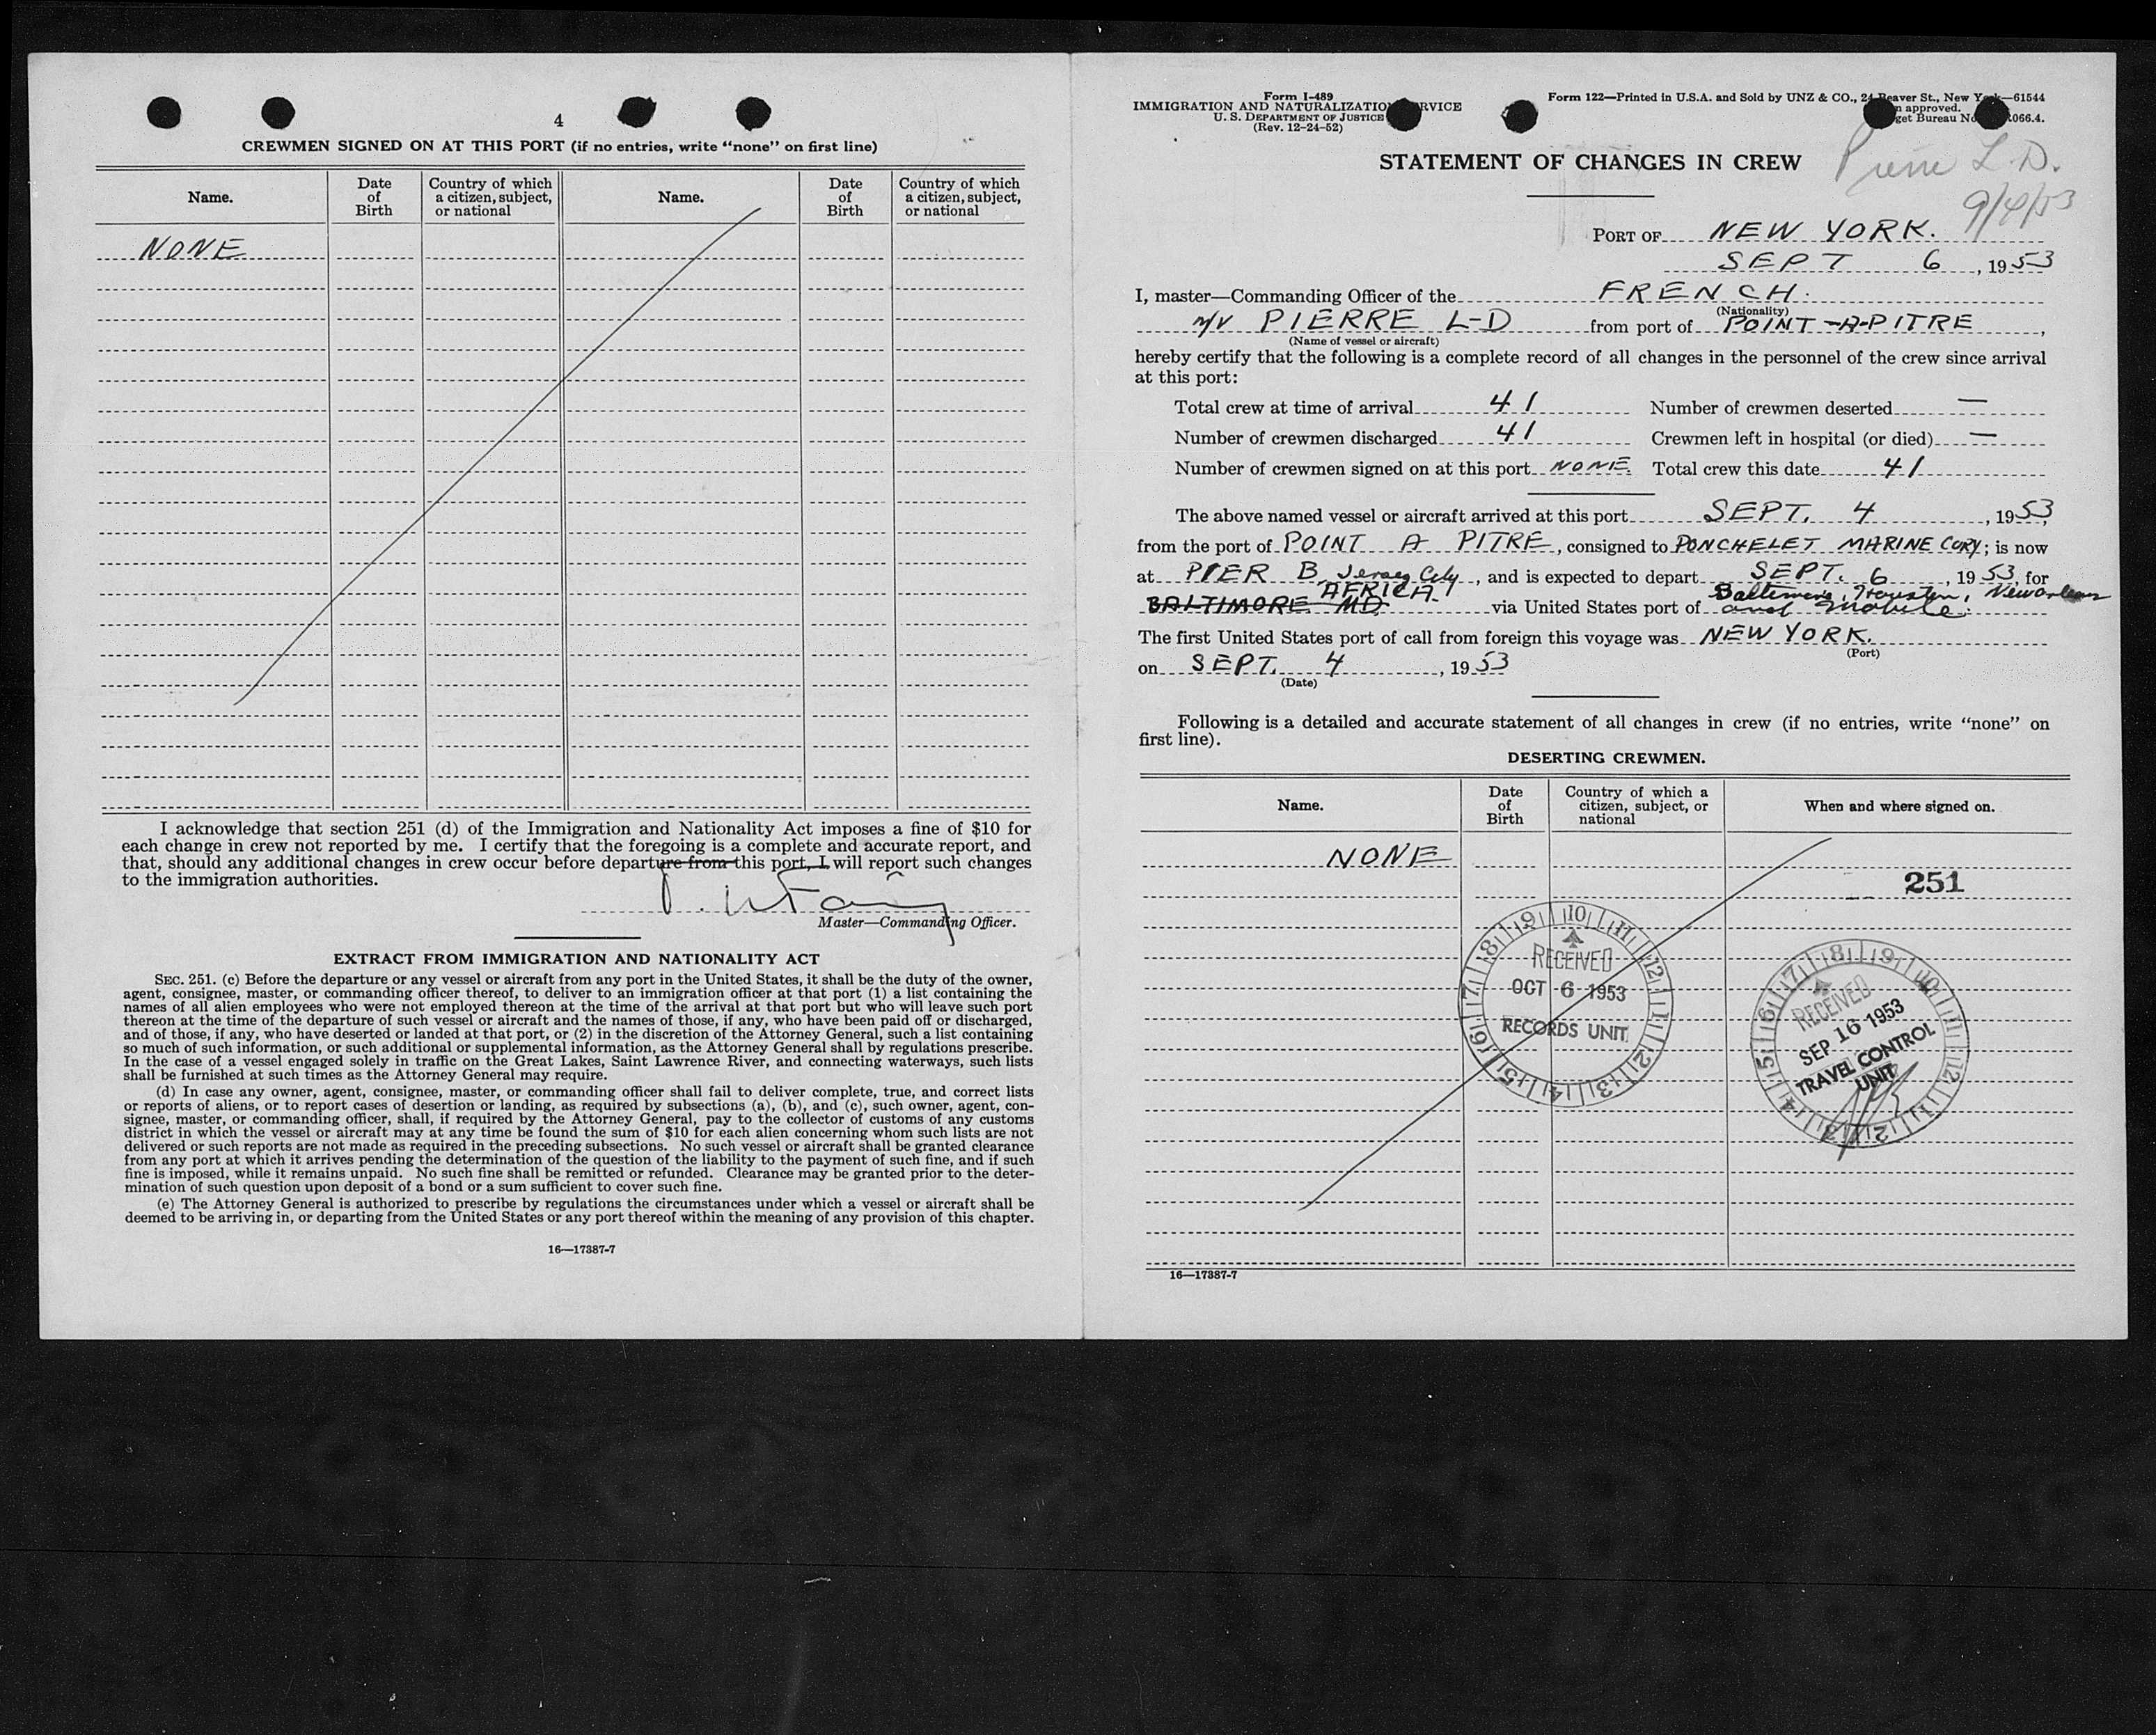 4
CREWMEN SIGNED ON AT THIS PORT (if no entries, write “none” on first line)
Name. Date of Birth Country of which a citizen, subject, or national Name. Date of Birth Country of which a citizen, subject, or national
NONE
I acknowledge that section 251 (d) of the Immigration and Nationality Act imposes a fine of $10 for
each change in crew not reported by me. I certify that the foregoing is a complete and accurate report, and
that, should any additional changes in crew occur before departure from this port, I will report such changes
to the immigration authorities.
Master—Commanding Officer.
EXTRACT FROM IMMIGRATION AND NATIONALITY ACT
SEC. 251. (c) Before the departure or any vessel or aircraft from any port in the United States, it shall be the duty of the owner,
agent, consignee, master, or commanding officer thereof, to deliver to an immigration officer at that port (1) a list containing the
names of all alien employees who were not employed thereon at the time of the arrival at that port but who will leave such port
thereon at the time of the departure of such vessel or aircraft and the names of those, if any, who have been paid off or discharged,
and of those, if any, who have deserted or landed at that port, or (2) in the discretion of the Attorney General, such a list containing
so much of such information, or such additional or supplemental information, as the Attorney General shall by regulations prescribe.
In the case of a vessel engaged solely in traffic on the Great Lakes, Saint Lawrence River, and connecting waterways, such lists
shall be furnished at such times as the Attorney General may require.
(d) In case any owner, agent, consignee, master, or commanding officer shall fail to deliver complete, true, and correct lists
or reports of aliens, or to report cases of desertion or landing, as required by subsections (a), (b), and (c), such owner, agent, con-
signee, master, or commanding officer, shall, if required by the Attorney General, pay to the collector of customs of any customs
district in which the vessel or aircraft may at any time be found the sum of $10 for each alien concerning whom such lists are not
delivered or such reports are not made as required in the preceding subsections. No such vessel or aircraft shall be granted clearance
from any port at which it arrives pending the determination of the question of the liability to the payment of such fine, and if such
fine is imposed, while it remains unpaid. No such fine shall be remitted or refunded. Clearance may be granted prior to the deter-
mination of such question upon deposit of a bond or a sum sufficient to cover such fine.
(e) The Attorney General is authorized to prescribe by regulations the circumstances under which a vessel or aircraft shall be
deemed to be arriving in, or departing from the United States or any port thereof within the meaning of any provision of this chapter.
16—17387-7
Form I-489
IMMIGRATION AND NATURALIZATION SERVICE
U. S. DEPARTMENT OF JUSTICE
(Rev. 12-24-52)
Form 122—Printed in U.S.A. and Sold by UNZ & CO., 24 Beaver St., New York—61544
approved.
Bureau No. 066.4.
STATEMENT OF CHANGES IN CREW
Pierre L. D.
9/4/53
PORT OF NEW YORK.
SEPT 6, 1953
I, master—Commanding Officer of the FRENCH.
(Nationality)
M/V PIERRE L-D from port of POINT-A-PITRE,
(Name of vessel or aircraft)
hereby certify that the following is a complete record of all changes in the personnel of the crew since arrival
at this port:
Total crew at time of arrival 41 Number of crewmen deserted —
Number of crewmen discharged 41 Crewmen left in hospital (or died) —
Number of crewmen signed on at this port NONE. Total crew this date 41
The above named vessel or aircraft arrived at this port SEPT. 4, 1953,
from the port of POINT A PITRE, consigned to PONCHELET MARINE CORP; is now
at PIER B, Jersey City, and is expected to depart SEPT. 6, 1953, for
AFRICA. Baltimore, Houston, New Orleans
BALTIMORE MD. via United States port of and Mobile.
The first United States port of call from foreign this voyage was NEW YORK.
(Port)
on SEPT. 4, 1953
(Date)
Following is a detailed and accurate statement of all changes in crew (if no entries, write “none” on
first line).
DESERTING CREWMEN.
Name. Date of Birth Country of which a citizen, subject, or national When and where signed on.
NONE
251
RECEIVED
OCT 6 1953
RECORDS UNIT
1 2 3 4 5 6 7 8 9 10 11 12
RECEIVED
SEP 16 1953
TRAVEL CONTROL
UNIT
1 2 3 4 5 6 7 8 9 10 11 12
16—17387-7